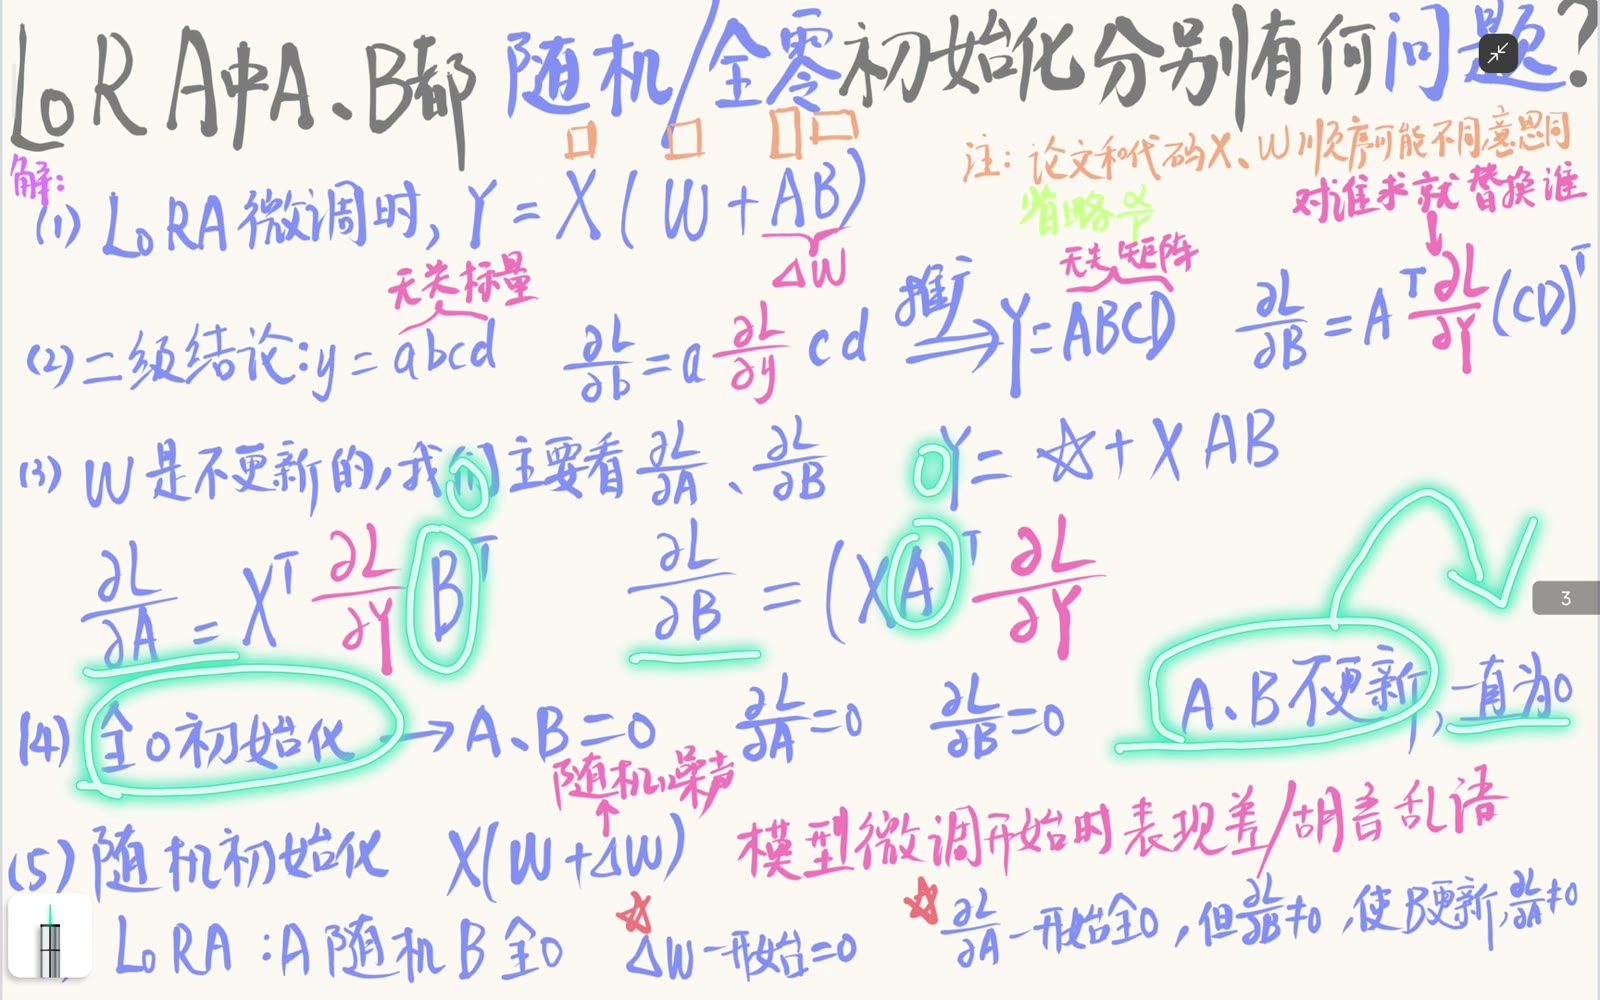 LoRA中A、B都随机/全零初始化分别有何问题?
注:论文和代码X、W顺序可能不同,意思同
解:
(1) LoRA微调时, Y = X(W+AB)
ΔW
省略 α/r
对谁求就替换谁
无关标量
无关矩阵
(2) 二级结论: y = abcd ∂L/∂b = a ∂L/∂y cd 推广 ⇒ Y = ABCD ∂L/∂B = A^T ∂L/∂Y (CD)^T
(3) W是不更新的,我们主要看 ∂L/∂A、∂L/∂B Y = ☆ + XAB
0 0
∂L/∂A = X^T ∂L/∂Y B^T ∂L/∂B = (XA)^T ∂L/∂Y
(4) 全0初始化 → A、B = 0 ∂L/∂A = 0 ∂L/∂B = 0 A、B不更新, 一直为0
随机噪声
(5) 随机初始化 X(W+ΔW) 模型微调开始时表现差/胡言乱语
LoRA: A随机B全0 ☆ ΔW一开始=0 ☆ ∂L/∂A一开始全0, 但∂L/∂B≠0, 使B更新, ∂L/∂A≠0
3